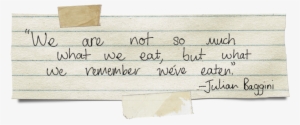 "We are not so much
what we eat, but what
we remember we've eaten."
-Julian Baggini